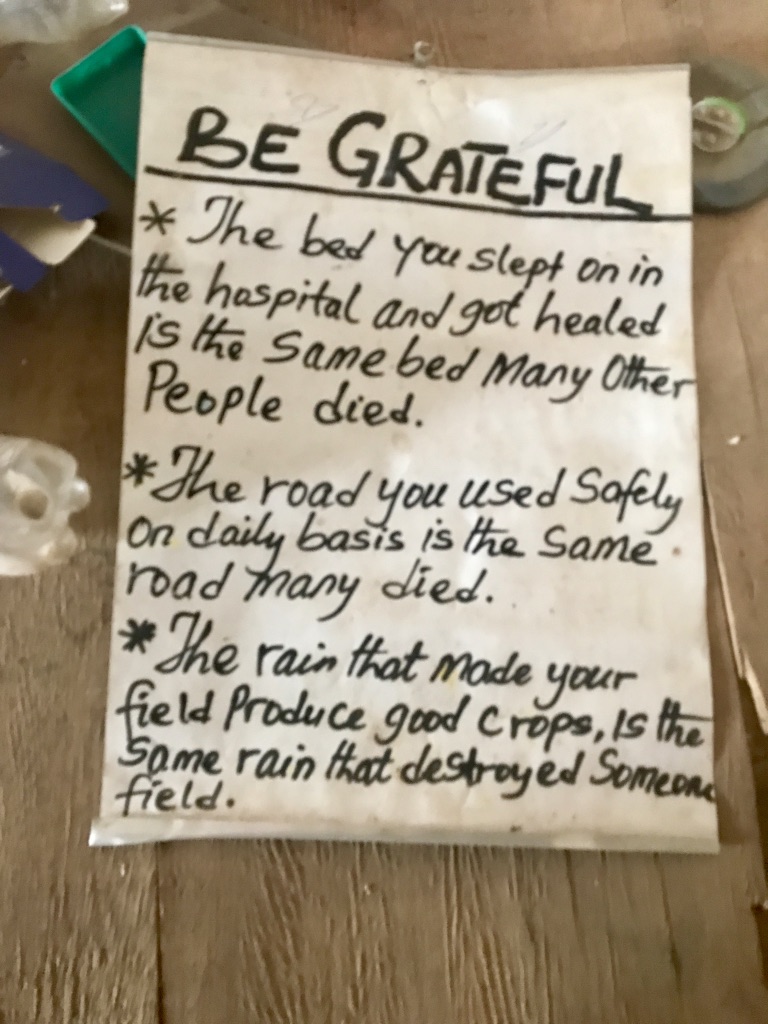 BE GRATEFUL
* The bed you slept on in
the hospital and got healed
is the same bed Many Other
People died.
* The road you used Safely
on daily basis is the Same
road many died.
* The rain that made your
field Produce good crops, is the
Same rain that destroyed Someone
field.